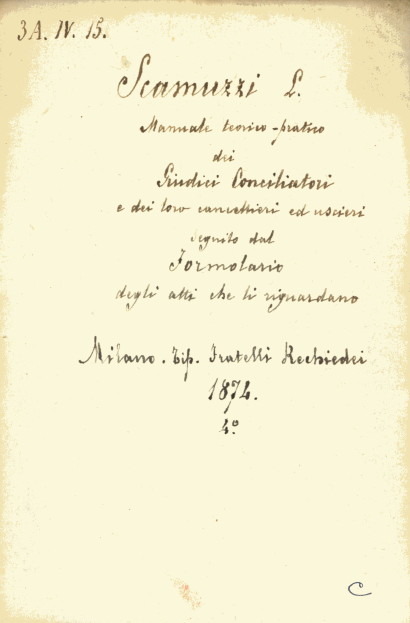 3A. IV. 15.
Scamuzzi L.
Manuale teorico-pratico
dei
Giudici Conciliatori
e dei loro cancellieri ed uscieri
seguito dal
Formolario
degli atti che li riguardano
Milano. Tip. Fratelli Rechiedei
1874.
4º
C